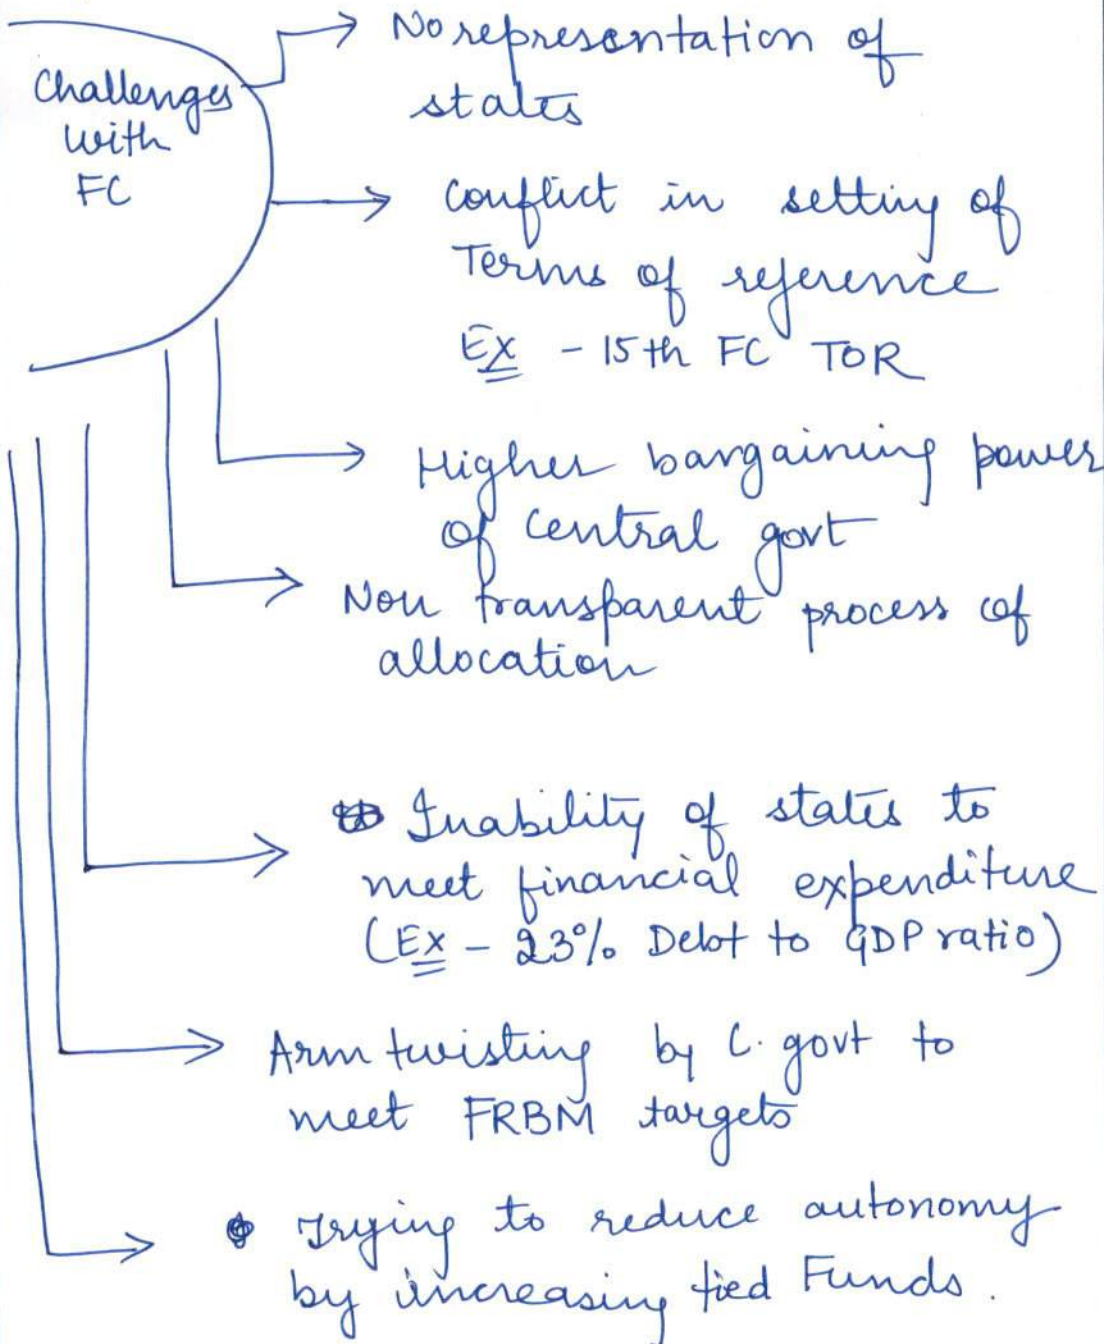 Challenges
with
FC
No representation of
states
Conflict in setting of
Terms of reference
Ex - 15th FC TOR
Higher bargaining power
of central govt
Non transparent process of
allocation
Inability of states to
meet financial expenditure
(Ex - 23% Debt to GDP ratio)
Arm twisting by C. govt to
meet FRBM targets
Trying to reduce autonomy
by increasing tied Funds.